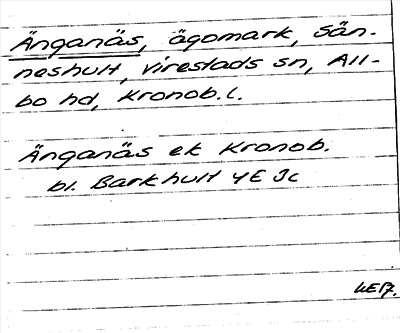 Änganäs, ägomark, Sän-
neshult, Virestads sn, All-
bo hd, Kronob. l.
Änganäs ek Kronob.
bl. Barkhult 4E 3c